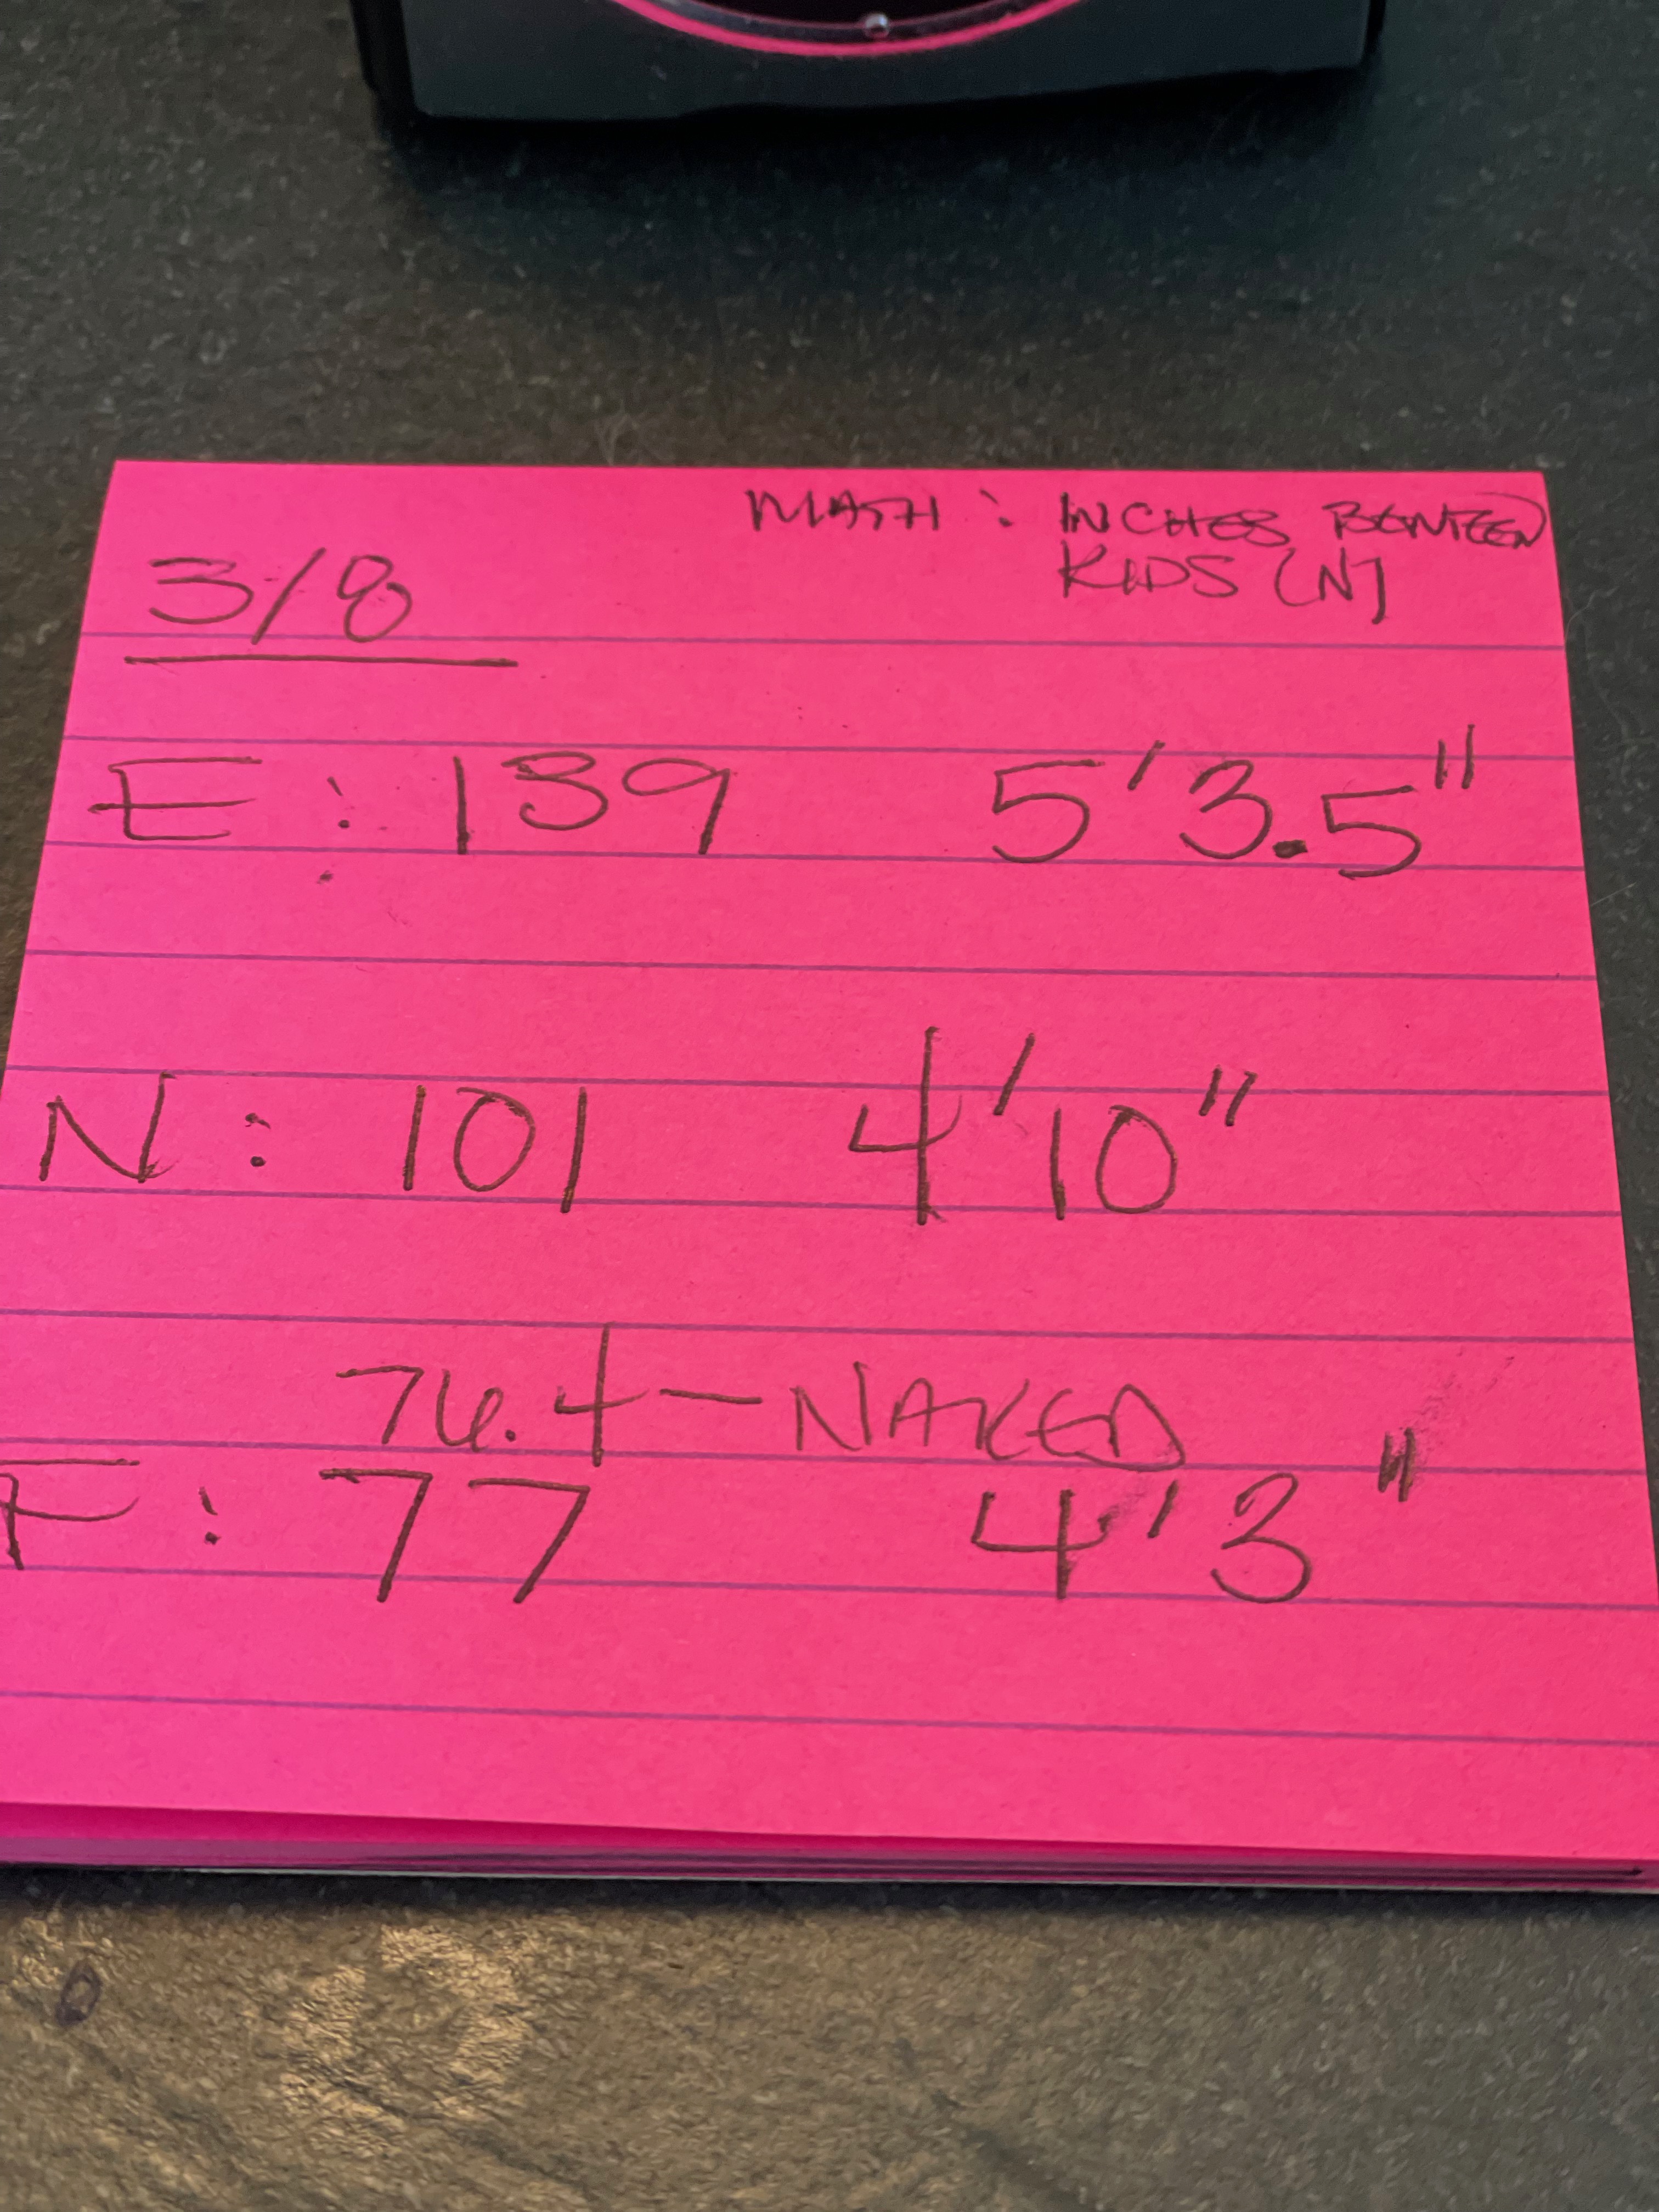 MATH: INCHES BETWEEN
KIDS (N)
3/8
E: 139 5'3.5"
N: 101 4'10"
76.4 — NAKED
F: 77 4'3"